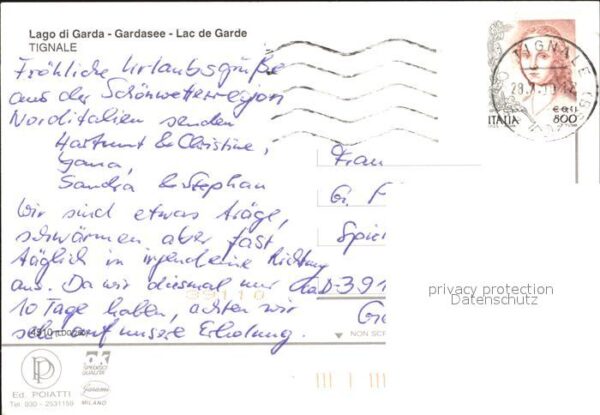 Lago di Garda - Gardasee - Lac de Garde
TIGNALE
Fröhliche Urlaubsgrüße
aus der Schönwetterregion
Norditalien senden
Hartmut & Christine,
Sandra & Stephan
Wir sind etwas träge,
schwärmen aber fast
täglich in irgendeine Richtung
aus. Da wir diesmal nur
10 Tage haben, achten wir
sehr auf unsere Erholung.
TIGNALE
ITALIA
800
Frau
G. F
Spie
D-391
39110
privacy protection
Datenschutz
NON SCR
Ed. POIATTI
Tel. 030 - 2531159
ok
SPEDISCI
QUALITA'
Garami
MILANO